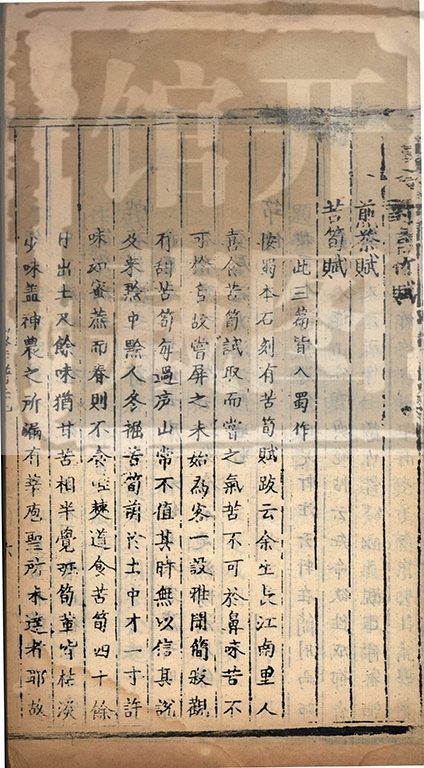 煎茶賦
苦筍賦
此三篇皆入蜀作
按蜀本石刻有苦筍賦跋云余生長江南里人
喜食苦筍試取而嘗之氣苦不可於鼻味苦不
可於舌故嘗屏之未始為客一設雅聞簡寂觀
有甜苦筍每過廬山常不值其時無以信其說
及來黔中黔人冬掘苦筍萌於土中才一寸許
味如蜜蔗而春則不食唯僰道食苦筍四十餘
日出土尺餘味猶甘苦相半覺班筍輩皆枯淡
少味蓋神農之所漏有莘庖聖所未達者耶故